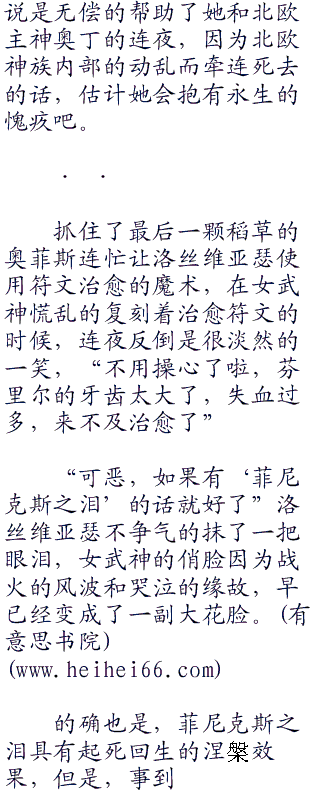 说是无偿的帮助了她和北欧
主神奥丁的连夜，因为北欧
神族内部的动乱而牵连死去
的话，估计她会抱有永生的
愧疚吧。
. .
抓住了最后一颗稻草的
奥菲斯连忙让洛丝维亚瑟使
用符文治愈的魔术，在女武
神慌乱的复刻着治愈符文的
时候，连夜反倒是很淡然的
一笑，“不用操心了啦，芬
里尔的牙齿太大了，失血过
多，来不及治愈了”
“可恶，如果有‘菲尼
克斯之泪’的话就好了”洛
丝维亚瑟不争气的抹了一把
眼泪，女武神的俏脸因为战
火的风波和哭泣的缘故，早
已经变成了一副大花脸。(有
意思书院)
(www.heihei66.com)
的确也是，菲尼克斯之
泪具有起死回生的涅槃效
果，但是，事到